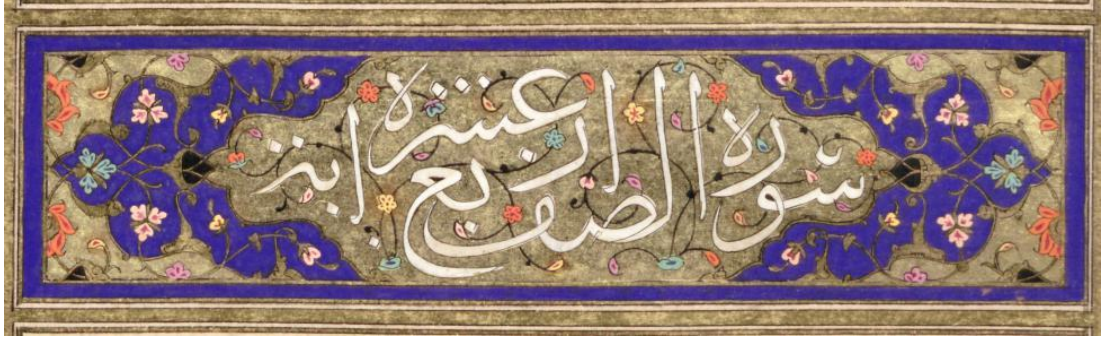 سورة الصف اربع عشرة اية